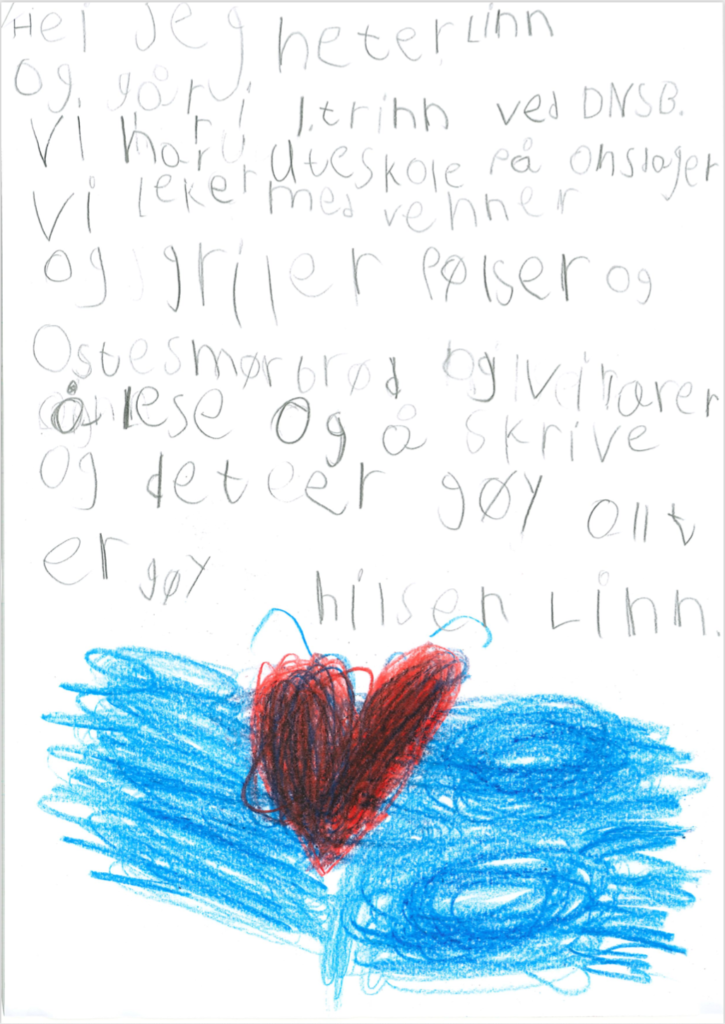 Hei jeg heter Linn
og går i 1.trinn ved DNSB.
Vi har uteskole på onsdager
Vi leker med venner
og griler pølser og
Ostesmørbrød og vi lærer
å lese og å skrive
og det er gøy allt
er gøy hilsen Linn.